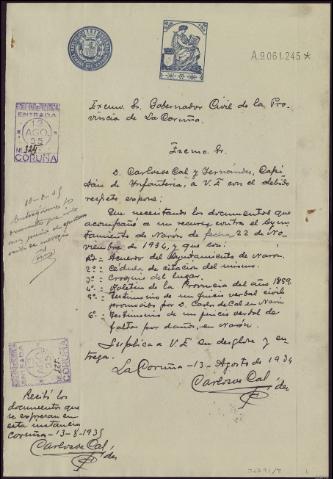 A9.061.245*
Excmo Sr Gobernador Civil de la Pro-
vincia de La Coruña.
Excmo Sr.
ENTRADA
13 AGO 35
CORUÑA
D. Carlos de Cal y Fernández, Capi-
tán de Infantería, a V.E. con el debido
respeto expone:
Que necesitando los documentos que
acompañó a un recurso contra el Ayun-
tamiento de Narón de fecha 22 de No-
viembre de 1934, y que son:
1º = Acuerdo del Ayuntamiento de Narón.
2º = Cédula de citación del mismo.
3º = Croquis del lugar.
4º = Boletín de la Provincia del año 1859.
5º = Testimonio de un juicio verbal civil
promovido por D. Carlos de Cal en Narón
6º = Testimonio de un juicio verbal de
faltas por daños, en Narón.
Suplica a V.E. su desglose y en-
trega.
La Coruña - 13 - Agosto de 1934
Carlos de Cal
ENTRADA
CORUÑA
Recibí los
documentos que
se expresan en
esta instancia
Coruña - 13-8-1935
Carlos de Cal